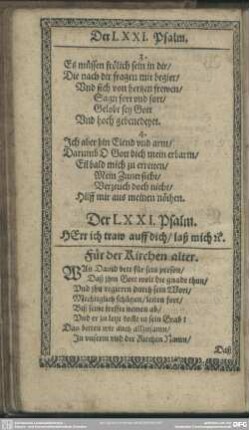 Der LXXI. Psalm.
3.
Es müssen frölich sein in dir/
Die nach dir fragen mit begier/
Vnd sich von hertzen frewen/
Sagn fern vnd fort/
Gelobt sey Gott
Vnd hoch gebenedeyet.
4.
Ich aber bin Elend vnd arm/
Darumb O Gott dich mein erbarm/
Eil bald mich zu erretten/
Mein Zuversicht/
Verzeuch doch nicht/
Hilff mir aus meinen nöthen.
Der LXXI. Psalm.
HErr ich traw auff dich/ laß mich ꝛc.
Für der Kirchen alter.
David bett für sein person/
Daß ihm Gott wolt die gnade thun/
Vnd ihn regieren durch sein Wort/
Mechtiglich schützen/ leiten fort/
Biß seine kreffte nemen ab/
Vnd er zu letzt solle ins Grab:
Das betten wir auch
In vnserm vnd der Kirchen Namen/
Daß